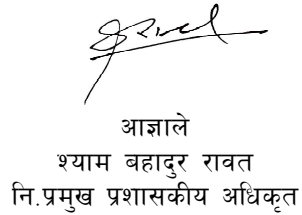 आज्ञाले
श्याम बहादुर रावत
नि.प्रमुख प्रशासकीय अधिकृत